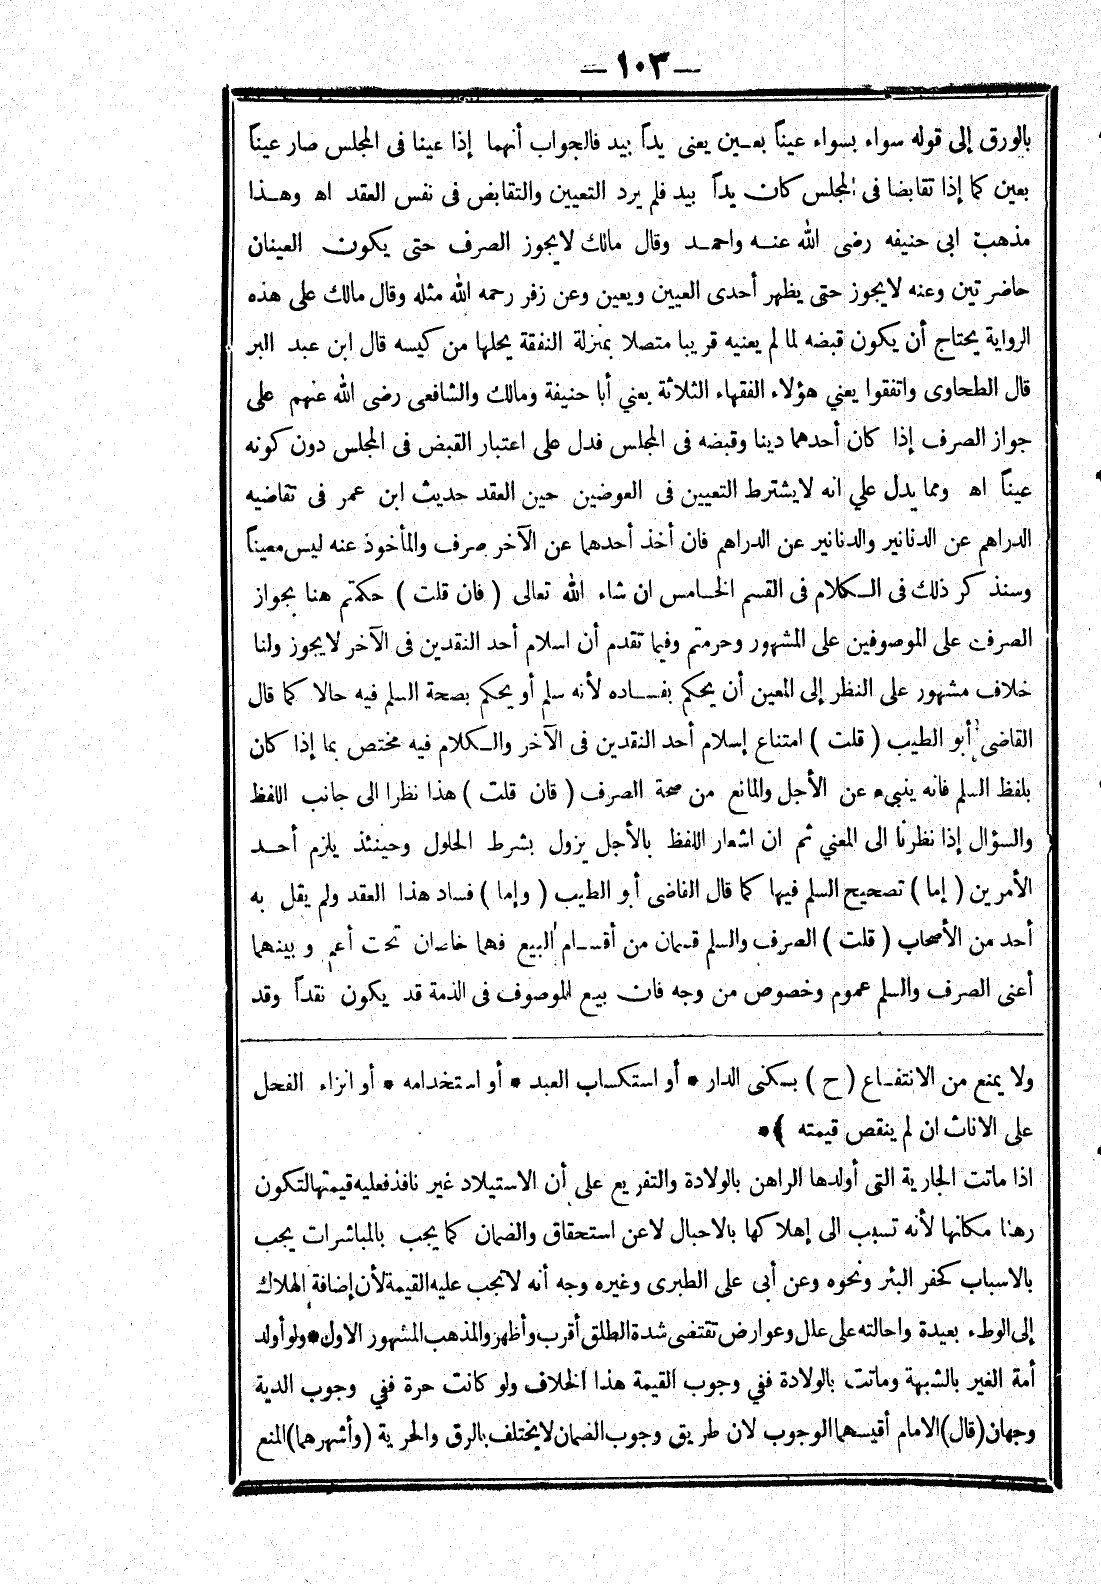 — ١٠٣ —
بالورق إلى قوله سواء بسواء عيناً بعين يعنى يداً بيد فالجواب أنهما إذا عينا فى المجلس صار عيناً
بعين كما إذا تقابضا فى المجلس كان يداً بيد فلم يرد التعيين والتقابض فى نفس العقد اه وهذا
مذهب ابى حنيفه رضى الله عنه واحمد وقال مالك لايجوز الصرف حتى يكون العينان
حاضرتين وعنه لايجوز حتى يظهر أحدى العيين ويعين وعن زفر رحمه الله مثله وقال مالك على هذه
الرواية يحتاج أن يكون قبضه لما لم يعنيه قريبا متصلا بمنزلة النفقة يحلها من كيسه قال ابن عبد البر
قال الطحاوى واتفقوا يعني هؤلاء الفقهاء الثلاثة بعني أبا حنيفة ومالك والشافعى رضى الله عنهم على
جواز الصرف إذا كان أحدهما دينا وقبضه فى المجلس فدل على اعتبار القبض فى المجلس دون كونه
عيناً اه ومما يدل علي انه لايشترط التعيين فى العوضين حين العقد حديث ابن عمر فى تقاضيه
الدراهم عن الدنانير والدنانير عن الدراهم فان أخذ أحدهما عن الآخر صرف والمأخوذ عنه ليس معيناً
وسنذكر ذلك فى الكلام فى القسم الخامس ان شاء الله تعالى ( فان قلت ) حكمتم هنا بجواز
الصرف على الموصوفين على المشهور وحرمتم وفيما تقدم أن اسلام أحد النقدين فى الآخر لايجوز ولنا
خلاف مشهور على النظر إلى المعين أن يحكم بفساده لأنه سلم أو يحكم بصحة السلم فيه حالا كما قال
القاضى أبو الطيب ( قلت ) امتناع إسلام أحد النقدين فى الآخر والكلام فيه مختص بما إذا كان
بلفظ السلم فانه ينبىء عن الأجل والمانع من صحة الصرف ( قان قلت ) هذا نظرا الى جانب اللفظ
والسؤال إذا نظرنا الى المعني ثم ان اشعار اللفظ بالأجل يزول بشرط الحلول وحينئذ يلزم أحد
الأمرين ( إما ) تصحيح السلم فيها كما قال القاضى أبو الطيب ( وإما ) فساد هذا العقد ولم يقل به
أحد من الأصحاب ( قلت ) الصرف والسلم قسمان من أقسام البيع فهما خاصان تحت أعم و بينهما
أعنى الصرف والسلم عموم وخصوص من وجه فان بيع الموصوف فى الذمة قد يكون نقداً وقد
ولا يمنع من الانتفاع ( ح ) بسكنى الدار * أو استكساب العبد * أو استخدامه * أو انزاء الفحل
على الاناث ان لم ينقص قيمته ﴾ *
اذا ماتت الجارية التى أولدها الراهن بالولادة والتفريع على أن الاستيلاد غير نافذ فعليه قيمتها لتكون
رهنا مكانها لأنه تسبب الى إهلاكها بالاحبال لاعن استحقاق والضمان كما يجب بالمباشرات يجب
بالاسباب كحفر البئر ونحوه وعن أبى على الطبرى وغيره وجه أنه لاتجب عليه القيمة لأن إضافة الهلاك
إلى الوطء بعيدة واحالته على علل وعوارض تقتضى شدة الطلق أقرب وأظهر والمذهب المشهور الاول * ولو أولد
أمة الغير بالشبهة وماتت بالولادة ففي وجوب القيمة هذا الخلاف ولو كانت حرة ففي وجوب الدية
وجهان (قال) الامام أقيسهما الوجوب لان طريق وجوب الضمان لايختلف بالرق والحرية (وأشهرهما) المنع